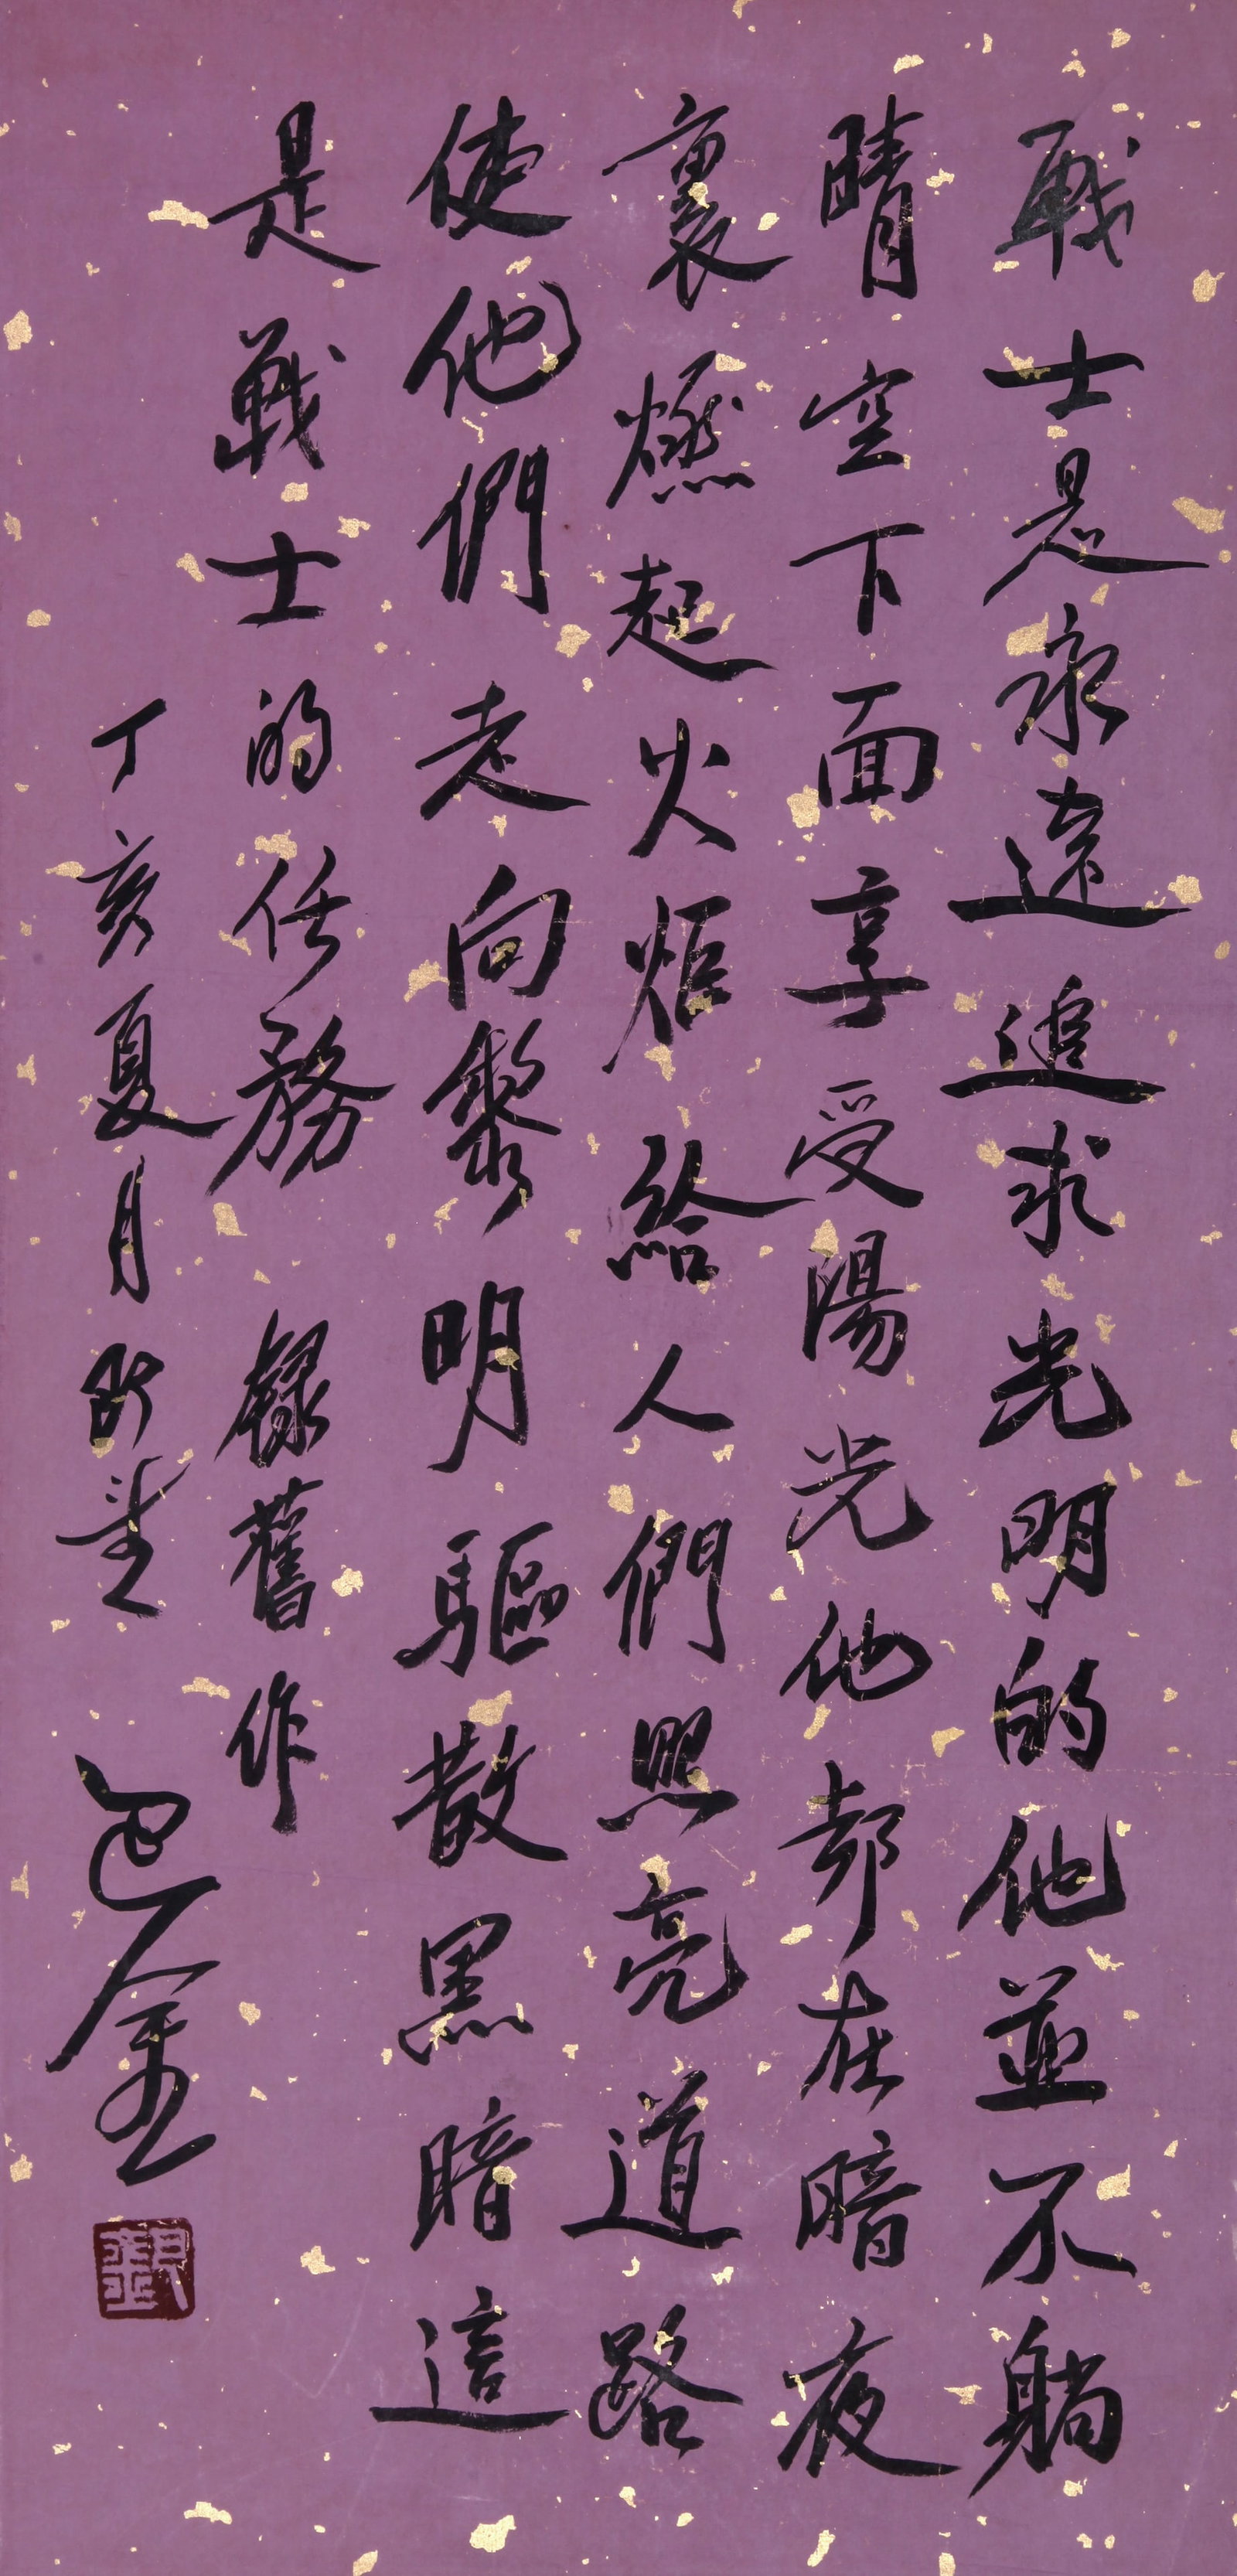 戰士是永遠追求光明的他並不躺
晴空下面享受陽光他却在暗夜
裏燃起火炬給人們照亮道路
使他們走向黎明驅散黑暗這
是戰士的任務 錄舊作
丁亥夏月 巴金